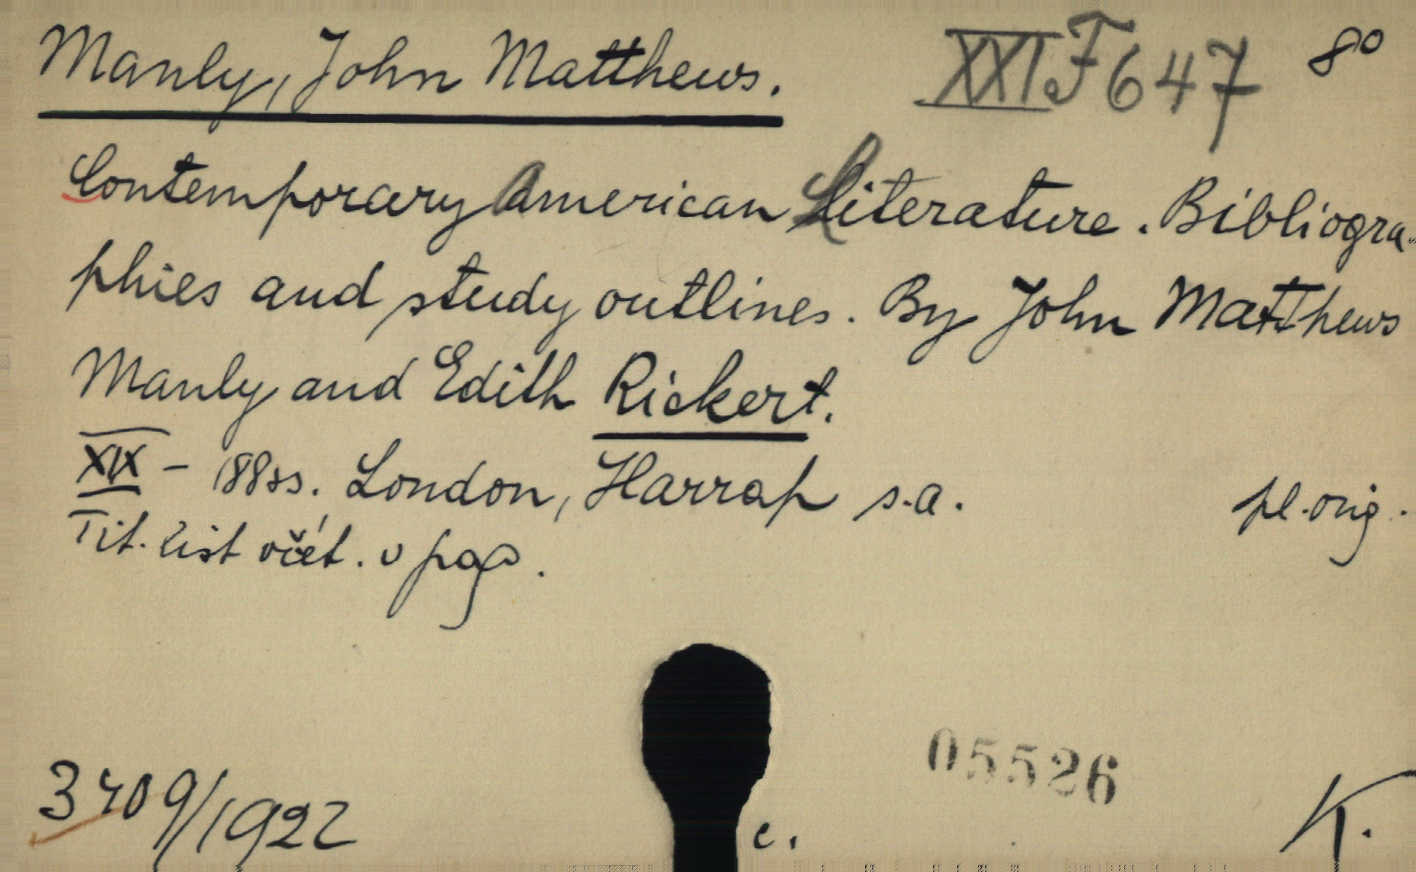 Manly, John Matthews. XXI F 647 8°
Contemporary American Literature. Bibliogra-
phies and study outlines. By John Matthews
Manly and Edith Rickert.
XIX – 188 ss. London, Harrap s.a. pl. orig.
Tit. list včet. v pag.
05526
3409/1922 c. K.